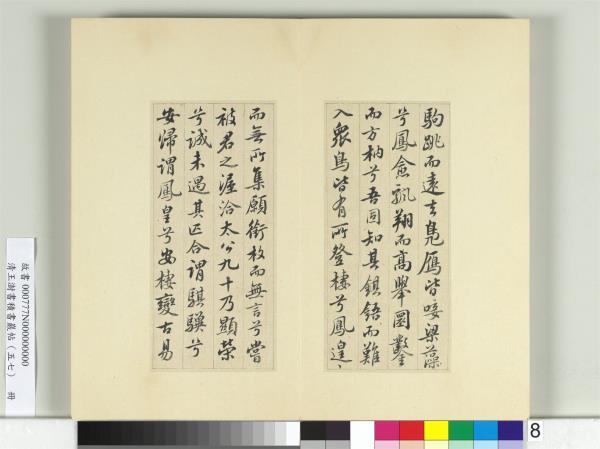 駒跳而遠去鳧鴈皆唼梁藻
兮鳳愈飄翔而高舉圜鑿
而方枘兮吾固知其鉏鋙而難
入眾鳥皆有所登棲兮鳳遑〻
而無所集願銜枚而無言兮嘗
被君之渥洽太公九十乃顯榮
兮誠未遇其匹合謂騏驥兮
安歸謂鳳皇兮安棲變古易
故書 000777N000000000
清王澍書積書巖帖(五七) 冊
8